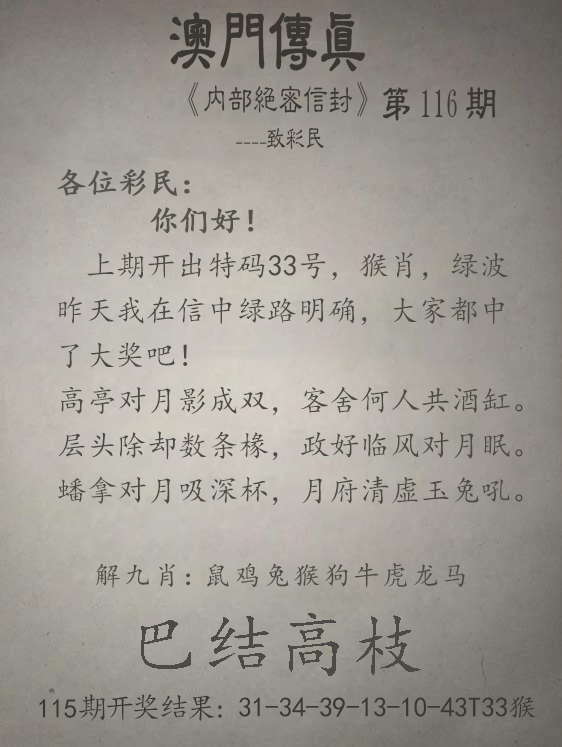 澳門傳眞
《内部絕密信封》第116期
----致彩民
各位彩民：
你们好！
上期开出特码33号，猴肖，绿波
昨天我在信中绿路明确，大家都中
了大奖吧！
高亭对月影成双，客舍何人共酒缸。
层头除却数条椽，政好临风对月眠。
蟠拿对月吸深杯，月府清虚玉兔吼。
解九肖：鼠鸡兔猴狗牛虎龙马
巴结高枝
115期开奖结果：31-34-39-13-10-43T33猴